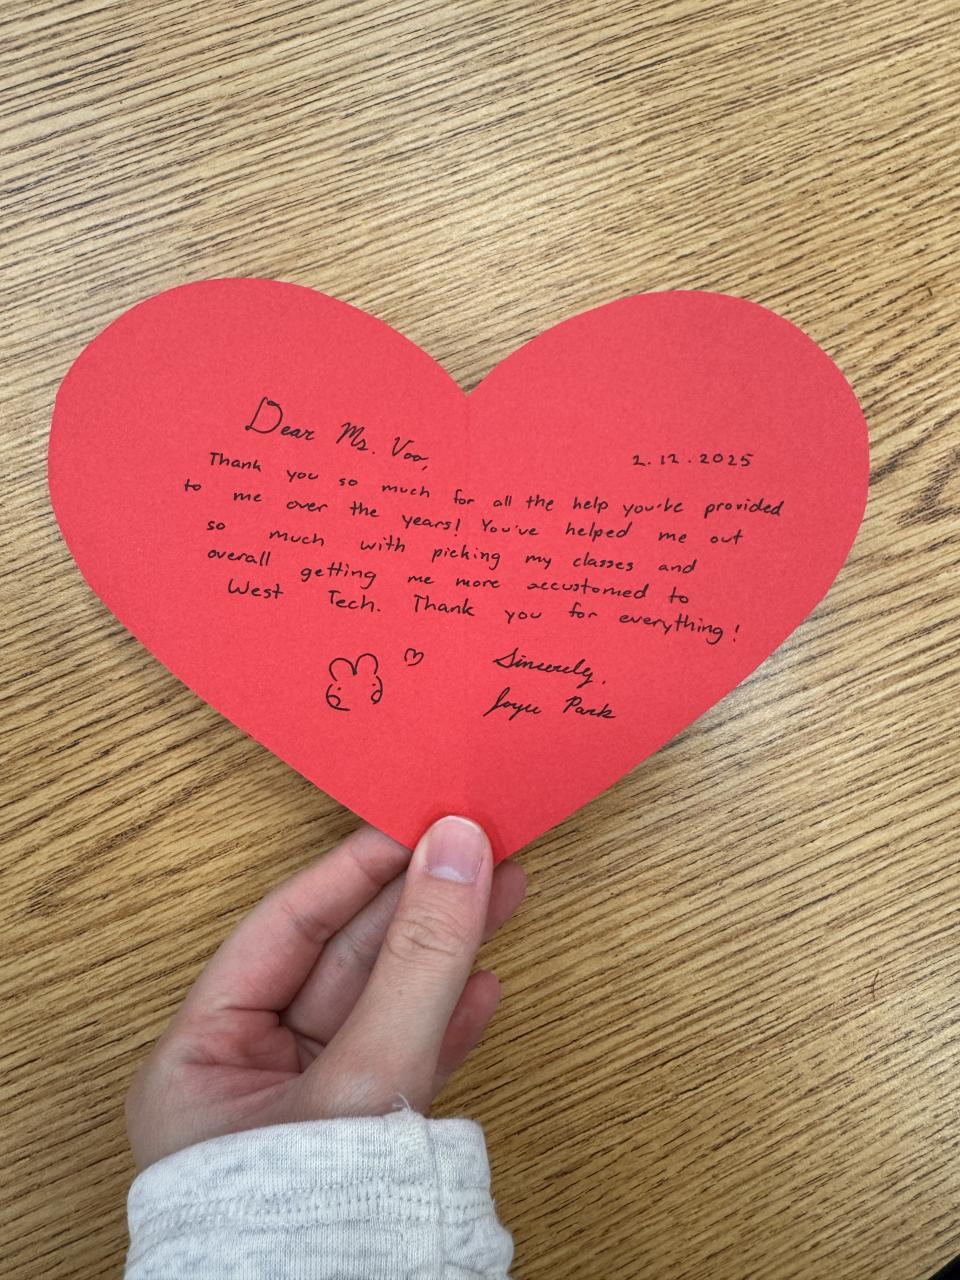 Dear Ms. Voo,
2.12.2025
Thank you so much for all the help you've provided
to me over the years! You've helped me out
so much with picking my classes and
overall getting me more accustomed to
West Tech. Thank you for everything!
Sincerely,
Joyce Park